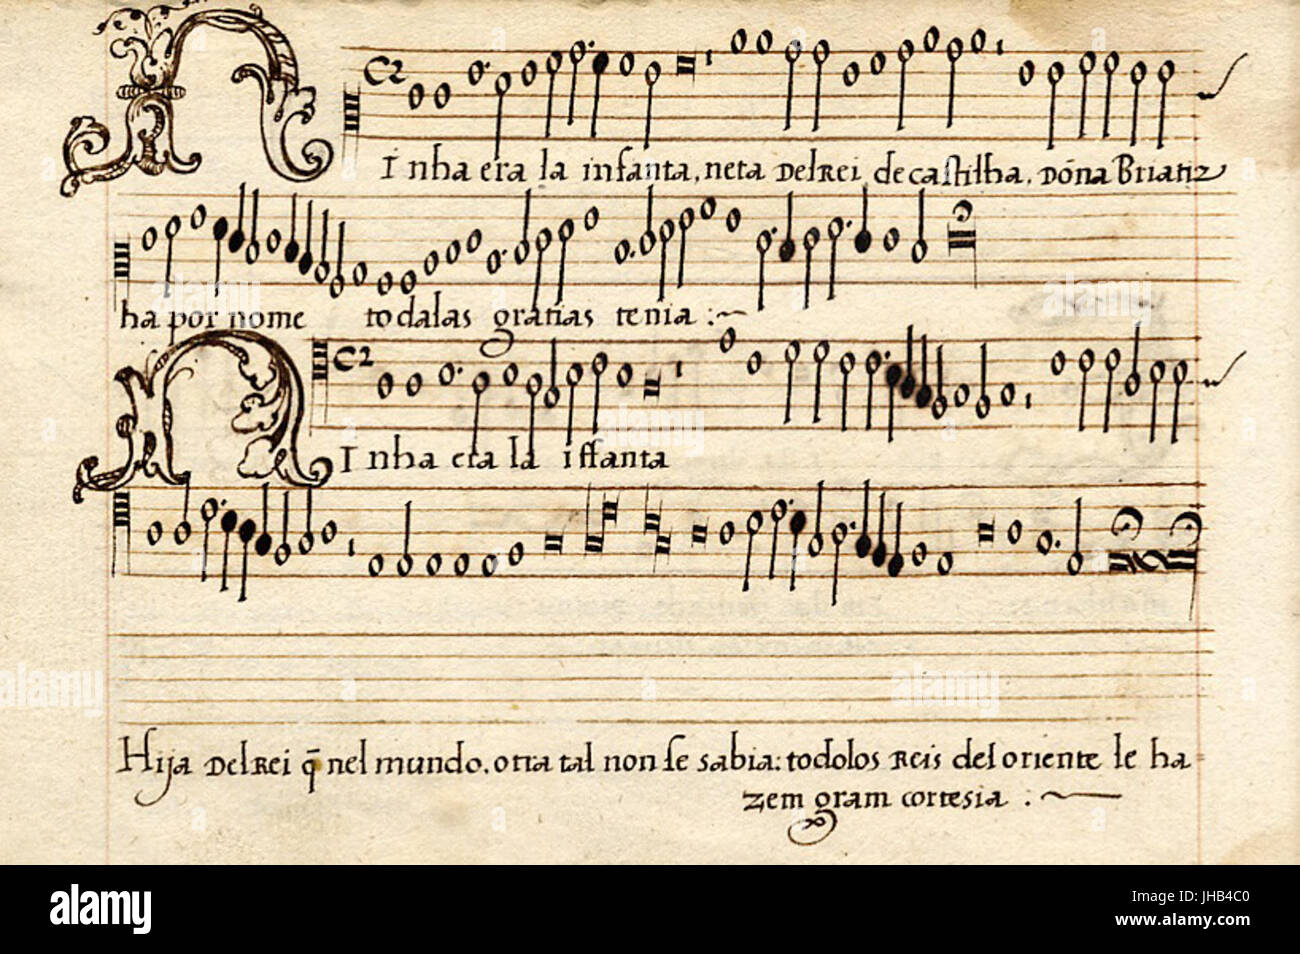 C2
NInha era la infanta, neta DelRei de castilha, Dõna Briatiz
ha por nome todalas gratias tenia :~
C2
NInha era la iffanta
Hija DelRei q̃ nel mundo. otra tal non se sabia: todolos Reis del oriente le ha=
zem gram cortesia :~
alamy
Image ID: JHB4C0
www.alamy.com